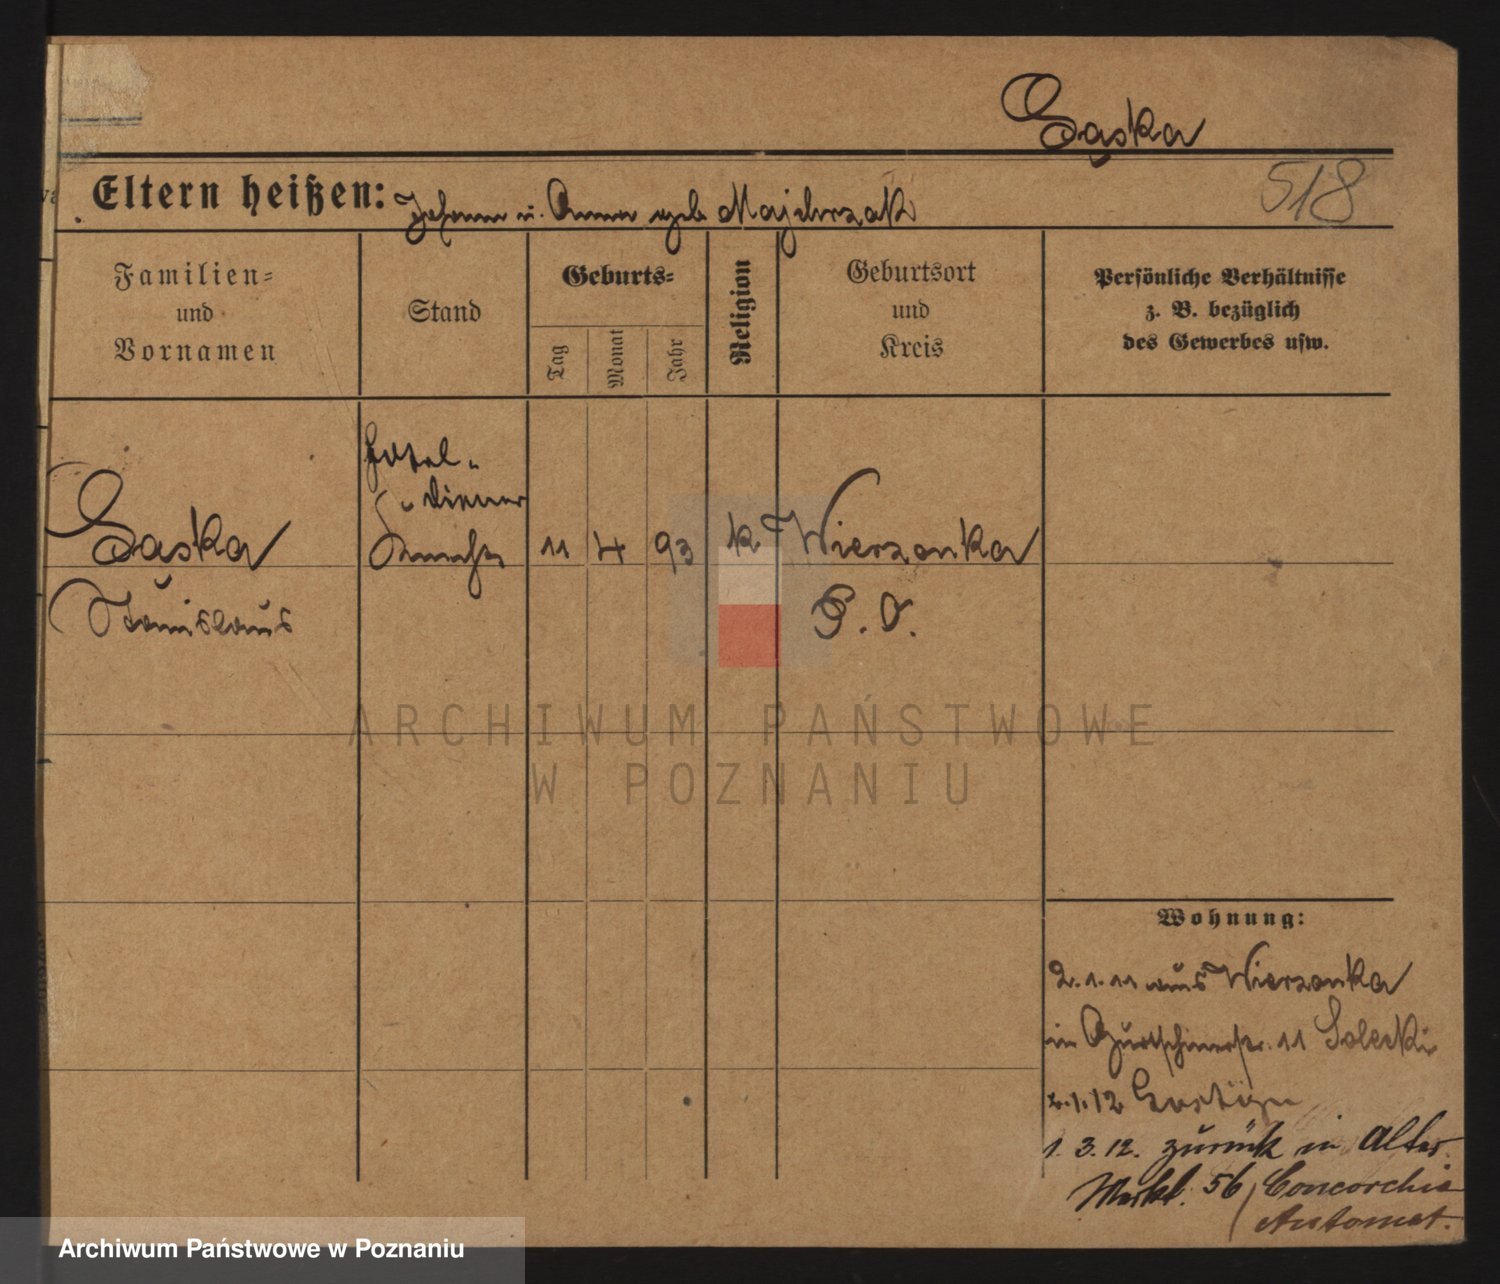 Sąska
518
Eltern heißen: Johann u. Anna geb Majchrzak
Familien-
und
Vornamen
Stand
Geburts-
Tag
Monat
Jahr
Religion
Geburtsort
und
Kreis
Persönliche Verhältnisse
z. B. bezüglich
des Gewerbes usw.
Hotel-
diener
Sąska
11 4 93 k Wierzonka
Stanislaus
P. O.
ARCHIWUM PAŃSTWOWE
W POZNANIU
Wohnung:
2.1.11 aus Wierzonka
in 11 Solecki
2.1.12
1. 3. 12. zurück in Alter
Markt. 56/ Concordia
Automat.
Archiwum Państwowe w Poznaniu